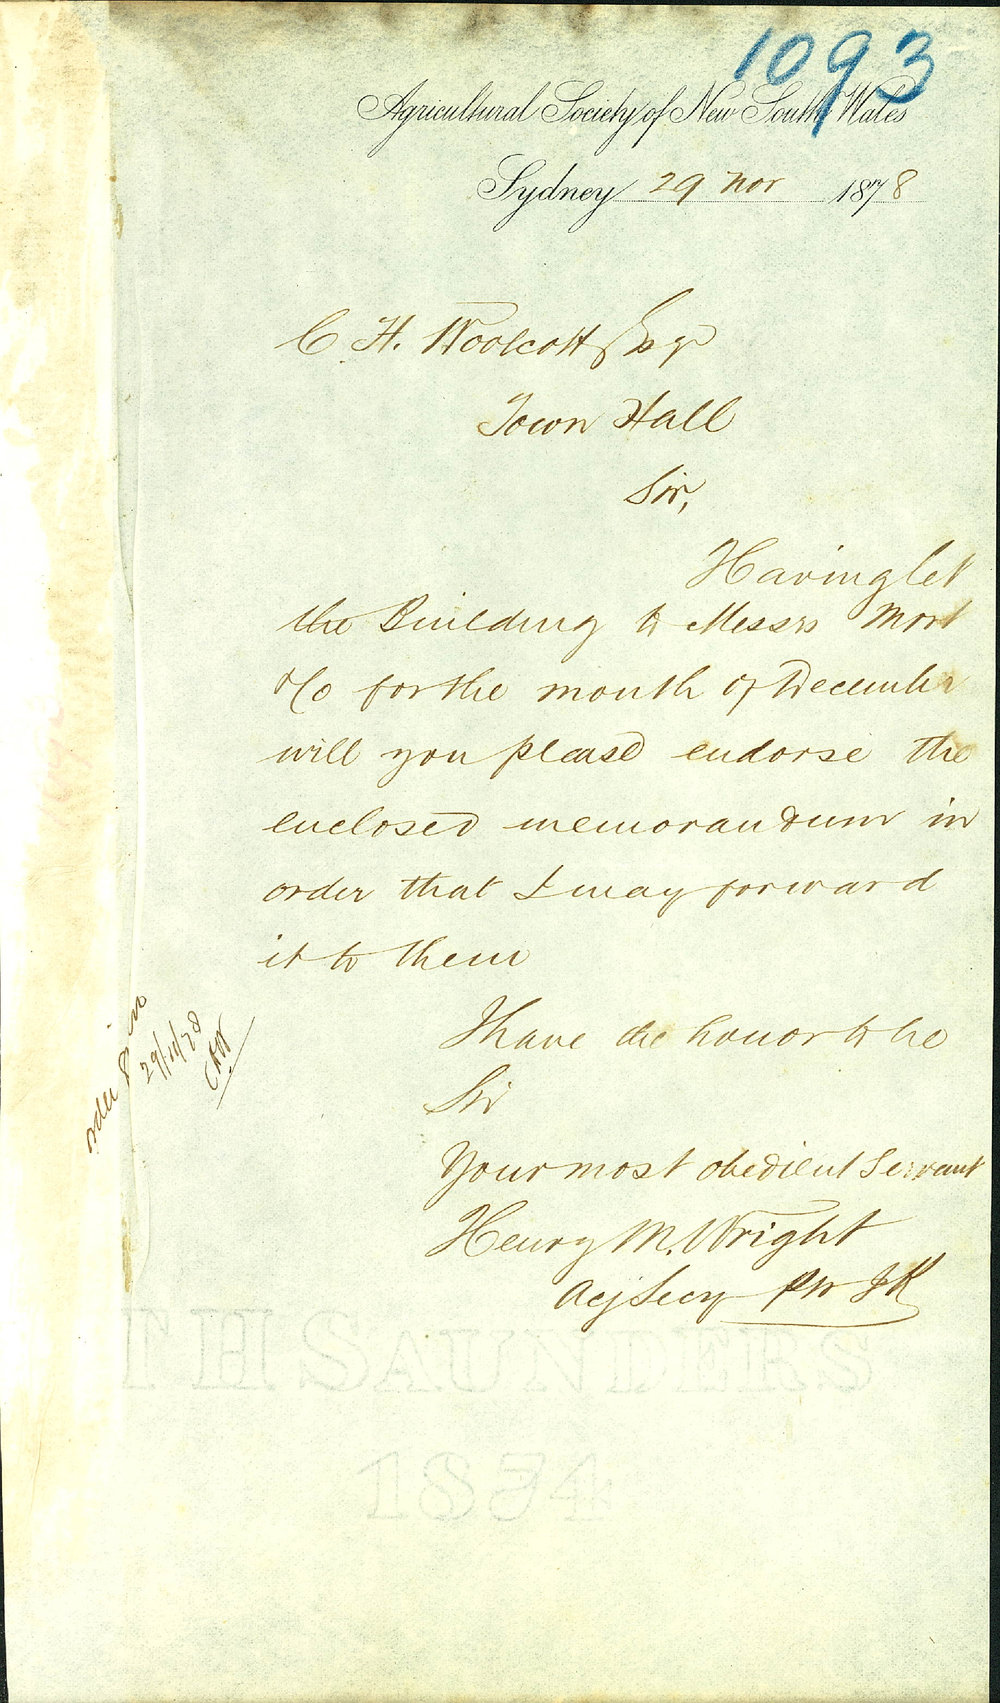 1093
Agricultural Society of New South Wales
Sydney 29 Nov 1878
C. H. Woolcott Esqr
Town Hall
Sir,
Having let
the Building to Messrs Mort
& Co for the month of December
will you please endorse the
enclosed memorandum in
order that I may forward
it to them
I have the honor to be
Sir
Your most obedient Servant
Henry M. Wright
Acg Secy
29/11/78
CHW
TH SAUNDERS
1874